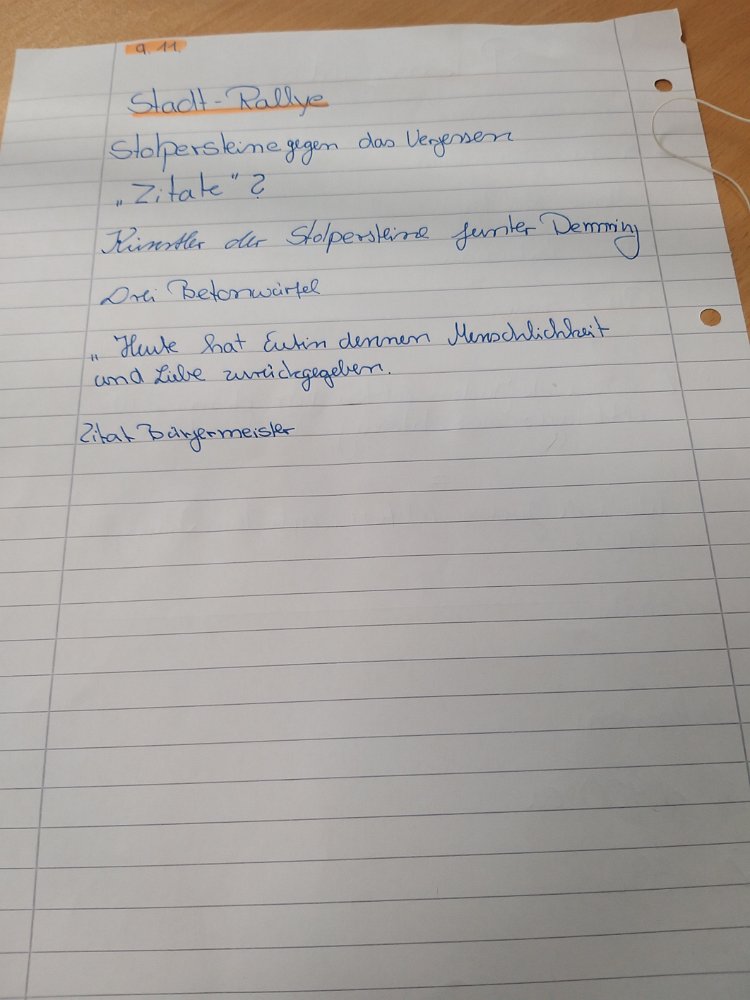 9.11.
Stadt-Rallye
Stolpersteine gegen das Vergessen
„Zitate" ?
Künstler der Stolpersteine Demming
Drei Betonwürfel
„Heute hat Eutin dennen Menschlichkeit
und Liebe zurückgegeben.
Zitat Bürgermeister